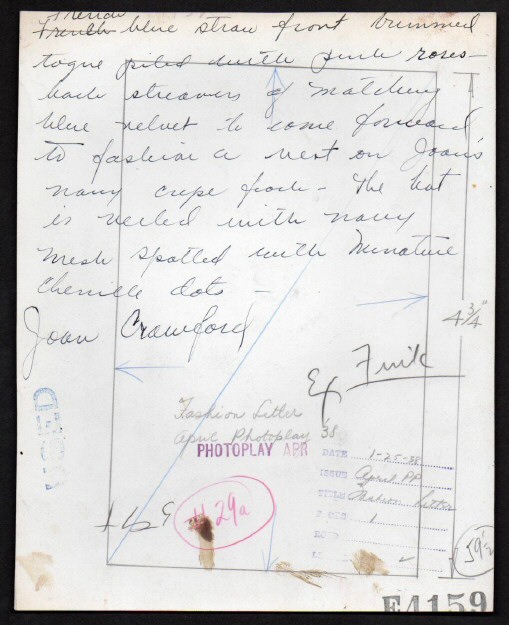 French
French blue straw front trimmed
toque piled with pink roses -
back streamers of matching
blue velvet to come forward
to fashion a vest on Joan's
navy crepe frock - The hat
is veiled with navy
mesh spotted with minature
chenille dots -
Joan Crawford
4 3/4"
Ex Fink
Fashion Letter
April Photoplay '38
PHOTOPLAY APR
USED
DATE 1-25-38
ISSUE April PP
TITLE Fashion Letter
1
# 29a
E4159